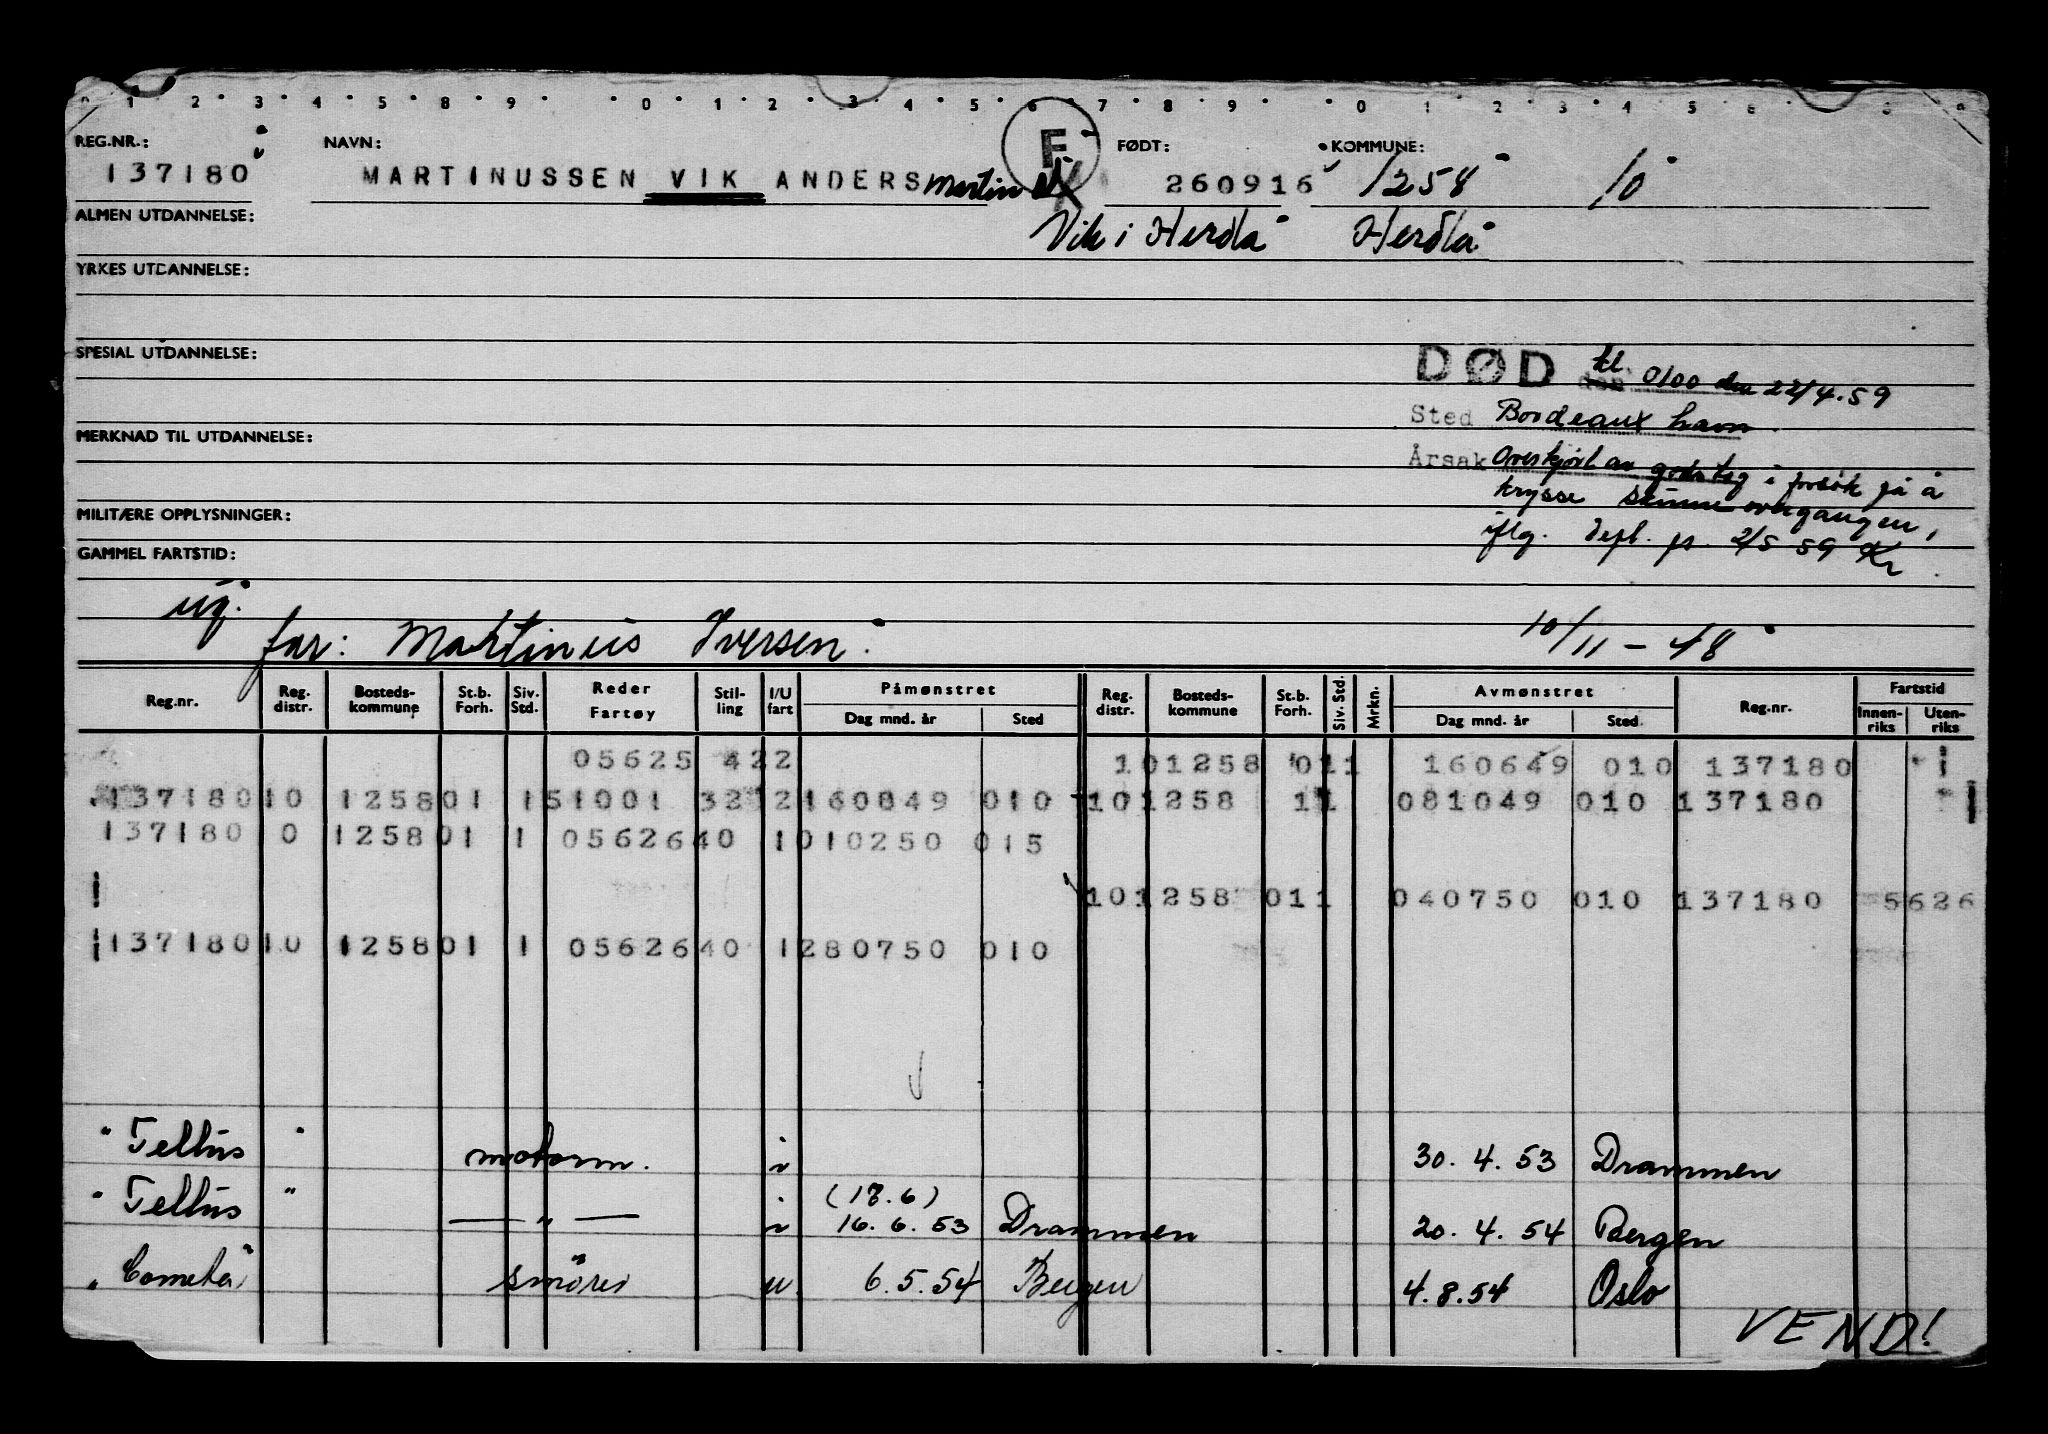 0 1 2 3 4 5 8 9 0 1 2 3 4 5 6 7 8 9 0 1 2 3 4 5 6 8 9
REG.NR.: NAVN: F FØDT: KOMMUNE:
137180 MARTINUSSEN VIK ANDERS Martin 260916 1258 10
ALMEN UTDANNELSE: Vik i Herdla Herdla
YRKES UTDANNELSE:
SPESIAL UTDANNELSE:
DØD den kl. 0100 den 22/4.59
Sted Bordeaux havn
MERKNAD TIL UTDANNELSE:
Årsak Overkjørt av godstog i forsøk på å
krysse skinneovergangen,
MILITÆRE OPPLYSNINGER:
iflg. depl. pr. 2/5 59 Kr
GAMMEL FARTSTID:
ug.
far: Martinus Iversen 10/11-48
Reg.nr. Reg. distr. Bosteds-kommune St.b. Forh. Siv. Std. Reder Fartøy Stil-ling I/U fart Påmønstret Dag mnd. år Sted Reg. distr. Bosteds-kommune St.b. Forh. Siv. Std. Mrkn. Avmønstret Dag mnd. år Sted Reg.nr. Fartstid Innen-riks Uten-riks
05625 422 101258 011 160649 010 137180
137180 10 125801 151001 3212160849 010 101258 11 081049 010 137180
137180 0 125801 1 0562640 1010250 015
101258 011 040750 010 137180 5626
137180 10 125801 1 0562640 1280750 010
"Tellus" motorm. i 30.4.53 Drammen
(17.6)
"Tellus" — " — i 16.6.53 Drammen 20.4.54 Bergen
"Cometa" smører u 6.5.54 Bergen 4.8.54 Oslo
VEND!